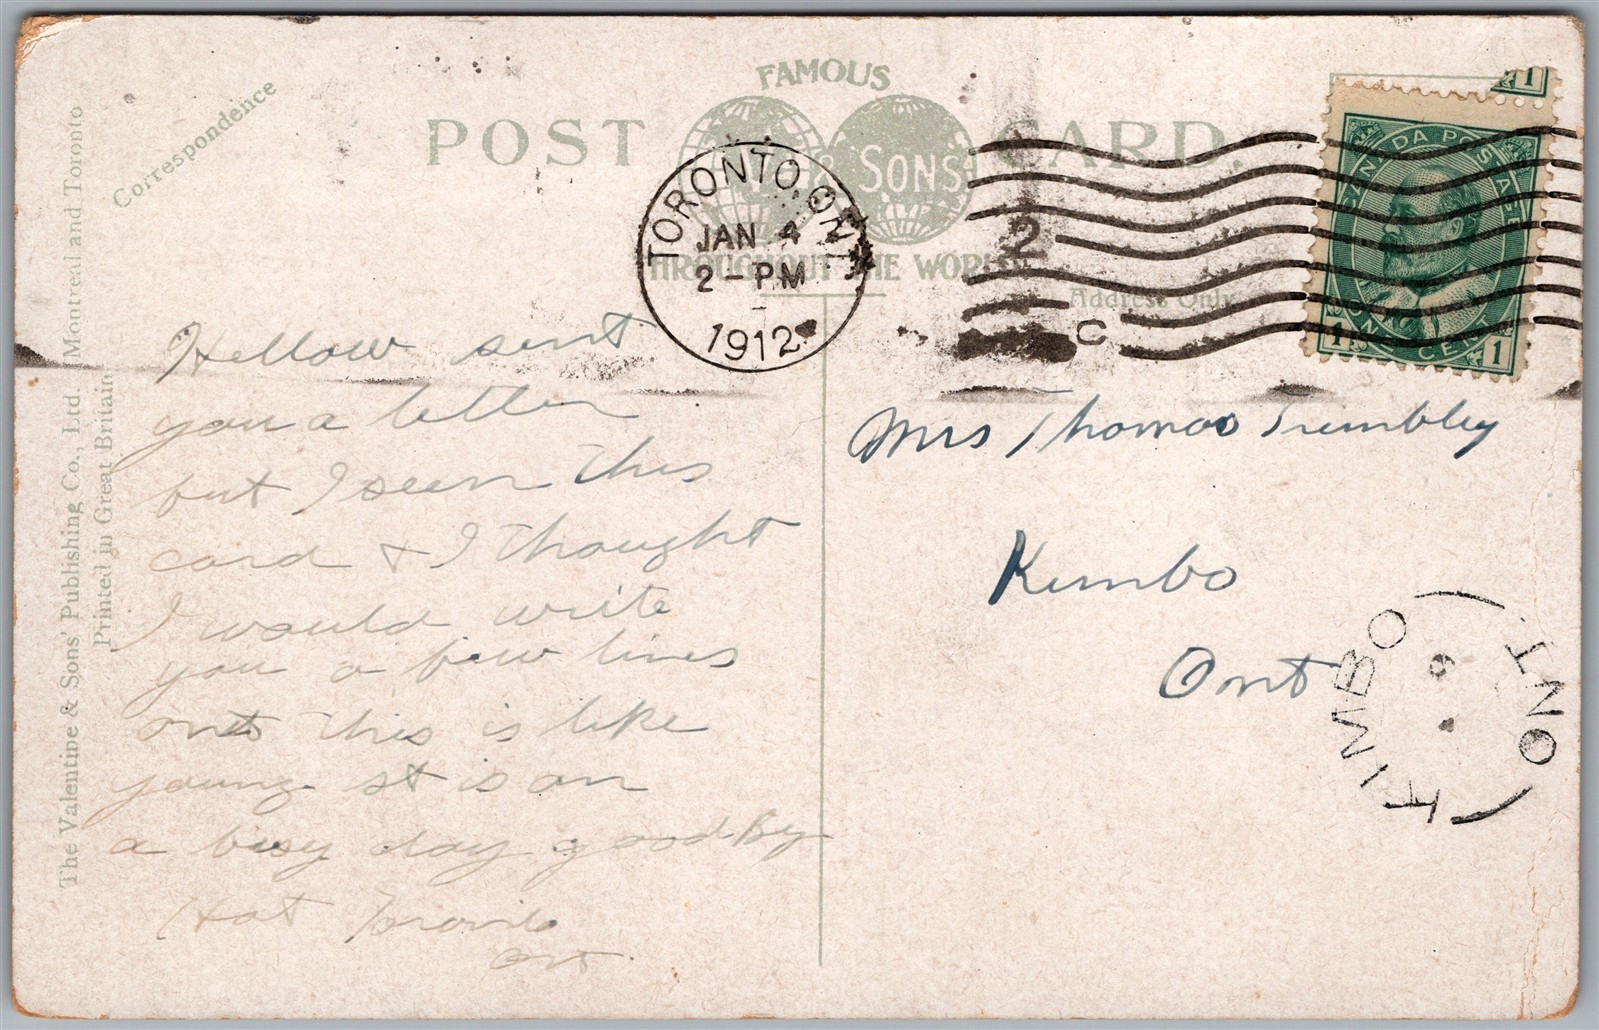 Correspondence
The Valentine & Sons' Publishing Co., Ltd. Montreal and Toronto
Printed in Great Britain
FAMOUS
POST CARD
& SONS'
THROUGHOUT THE WORLD
Address Only
TORONTO, ONT
JAN 4
2 - PM
1912
2
C
1
CANADA POSTAGE
1 ONE CENT 1
Hellow sent
you a letter
but I seen this
card & I thought
I would write
you a few lines
this is like
young st is on
a busy day good By
Mrs Thomas Trembley
Kimbo
Ont
KIMBO
ONT.